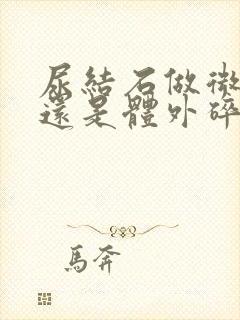 尿結石做微
還是體外碎
馬奔